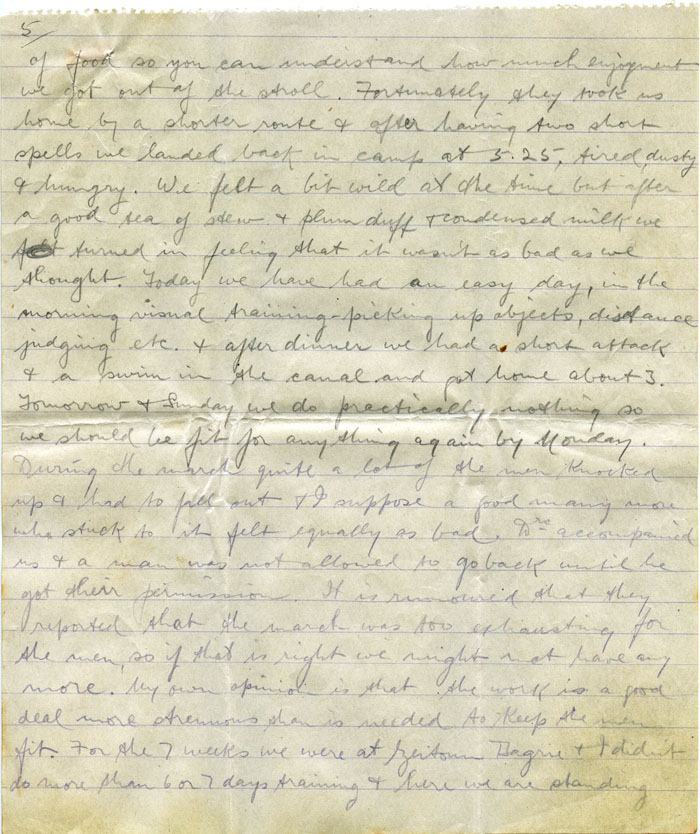 5/
of food so you can understand how much enjoyment
we got out of the stroll. Fortunately they took us
home by a shorter route & after having two short
spells we landed back in camp at 5.25, tired, dusty
& hungry. We felt a bit wild at the time but after
a good tea of stew & plum duff & condensed milk we
turned in feeling that it wasn't as bad as we
thought. Today we have had an easy day, in the
morning visual training - picking up objects, distance
judging etc. & after dinner we had a short attack
& a swim in the canal and got home about 3.
Tomorrow & Sunday we do practically nothing so
we should be fit for anything again by Monday.
During the march quite a lot of the men knocked
up & had to fall out & I suppose a good many more
who stuck to it felt equally as bad. Drs accompanied
us & a man was not allowed to go back until he
got their permission. It is rumoured that they
reported that the march was too exhausting for
the men, so if that is right we might not have any
more. My own opinion is that the work is a good
deal more strenuous than is needed to keep the men
fit. For the 7 weeks we were at Zeitoun & I didn't
do more than 6 or 7 days training & here we are standing